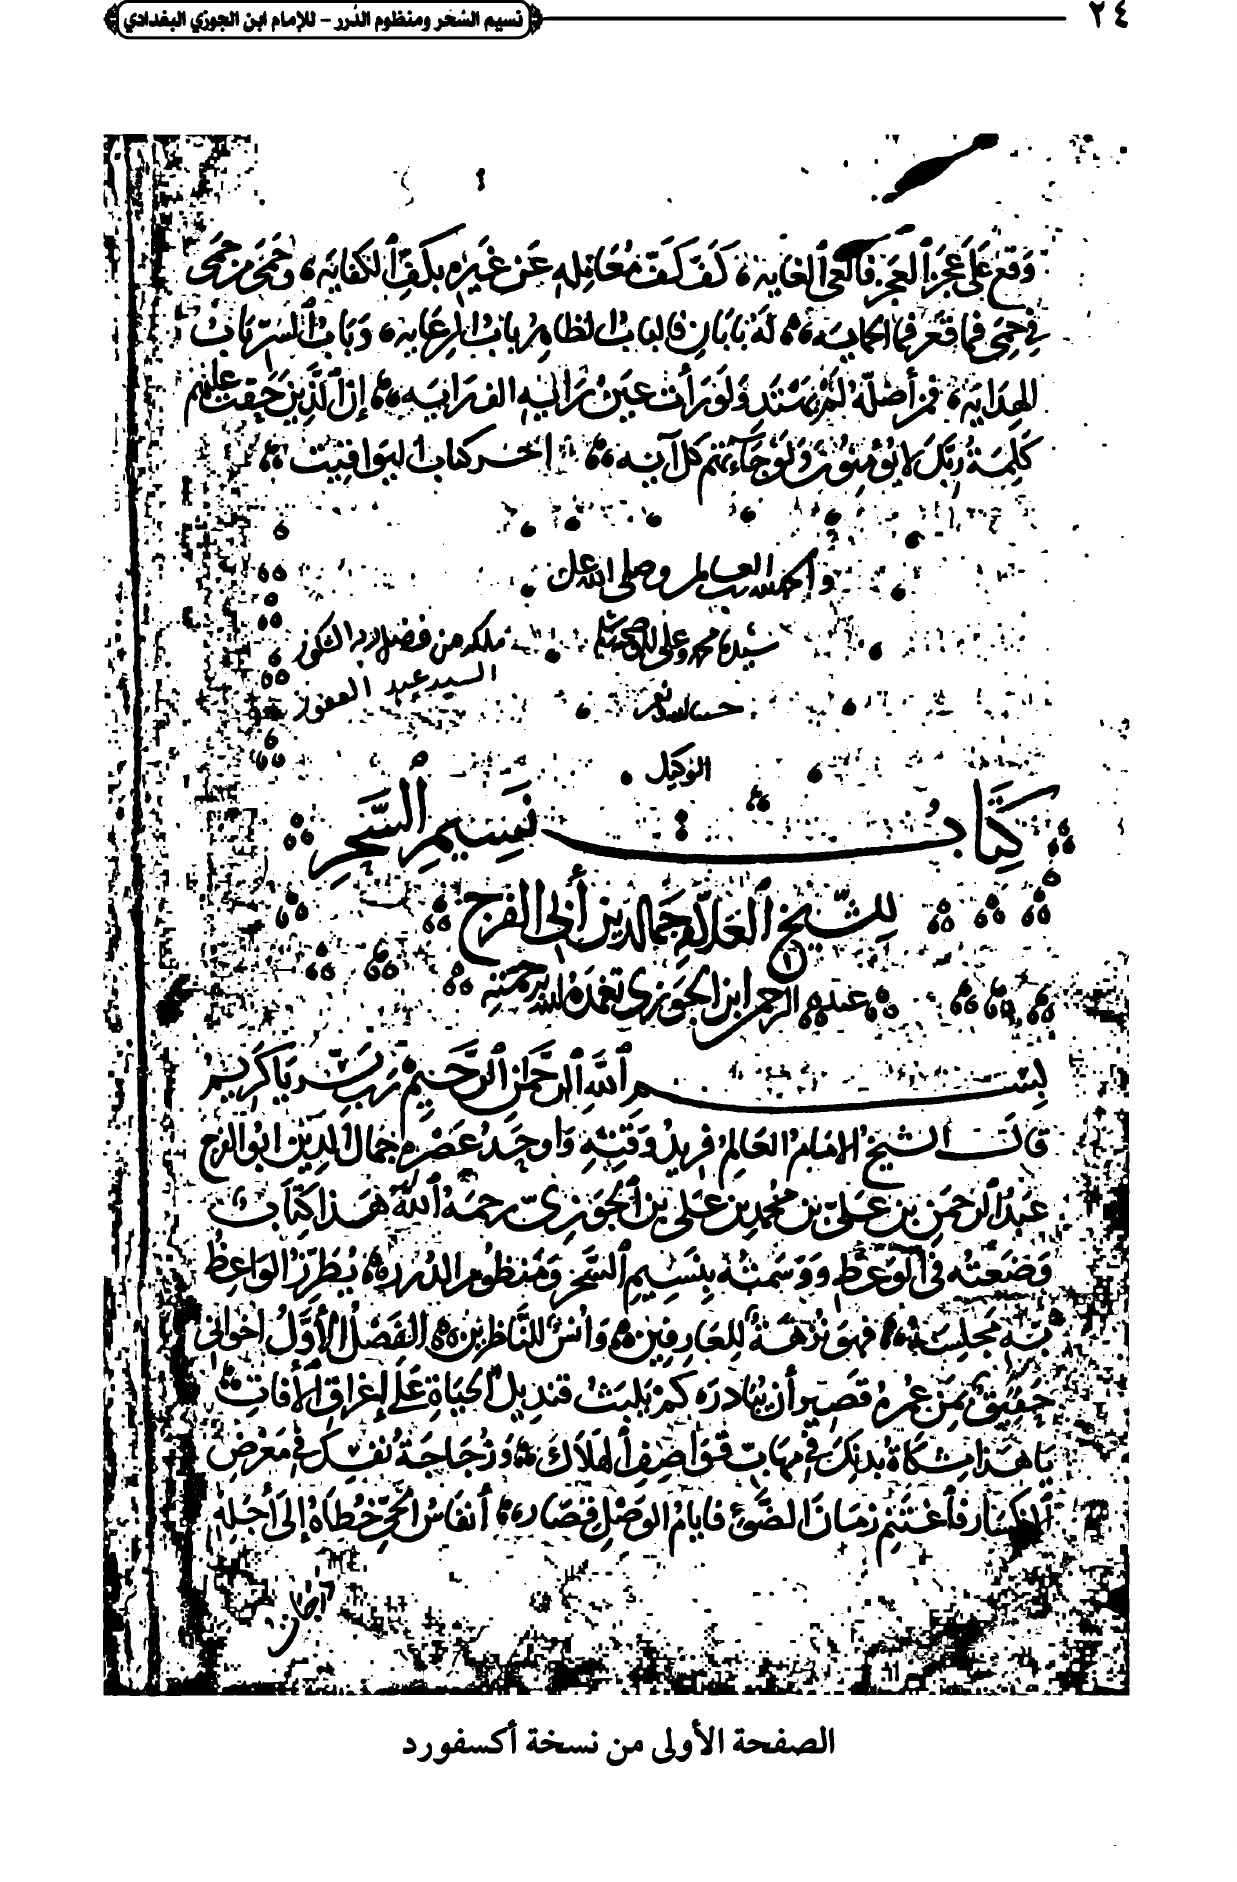 ٢٤
نسيم السَّحَر ومنظوم الدُّرر – للإمام ابن الجوزي البغدادي
وَقعَ عَلَى عَجزِ العَجز فألغى الغايه، كَفَّ كَفّ عَن غَيرِه بكفِّ الكفايَه، وحمَى من حمَى
في حِمَى فما قعر فما الحمايه، لَهُ بَابَانِ فالبابُ الظاهِر بابُ الرعَايه، وَبَابُ السِّر بَابُ
الهِدَايَه، فَمن أضلّهُ لَم يَهتَدِ وَلَو رَأت عَينُ الف رَايَه إنّ الَّذِينَ حَقَّت عَلَيهِم
كَلِمَةُ رَبِّكَ لا يُؤمِنُونَ وَلَو جَاءَتهُم كلُّ آيَه اخر كتاب اليواقيت
والحمد لله رب العالمين وصلى الله على
سيدنا محمد وعلى آله وصحبه
ملكه من فضل ربه
السيد عبد الغفور
حسبنا الله ونعم
الوكيل
كِتَابُ نَسِيمِ السَّحَرِ
لِلشَّيخِ العَلَّامَةِ جَمَال الدين أبي الفرج
عبد الرحمن ابن الجَوزي تغمّدهُ الله برحمته
بِسمِ اللهِ الرَّحمَن الرَّحِيمِ رَبِّ يَسِّر يَا كَرِيم
قالَ الشيخُ الإمَامُ العَالِمُ فريدُ وَقتِهِ وَأوحَدُ عَصرِهِ جمَالُ الدِّين ابو الفرج
عَبدُ الرحمَنِ بن عَلي بن محمد بن عَلي بن الجَوزي رحِمَهُ الله هَذا كِتَابٌ
وَضَعتُهُ في الوَعظ وَوَسَمتُهُ بِنَسِيمِ السَّحَر وَمَنظُومِ الدُرَر يُطَرِّزُ الوَاعِظُ
بِهِ مَجلِسَهُ فهوَ نُزهَةٌ لِلعَارِفِين وَأُنسٌ لِلنَّاظرِين الفَصلُ الأوَّل اخوَاني
حَقيقٌ بمَن عُمرُهُ قَصير أن يُبَادرَه كم يَلبَثُ قنديلُ الحيَاةِ عَلَى إغرَاقِ الآفاتِ
يَا هَذا مِشكَاةُ بدنكَ في مهابّ قوَاصِفِ الهَلَاك وَزُجَاجَةُ نَفسِكَ في مَعرَض
الانكسَار فَاغتَنِم زمَانَ الضَّوء فأيامُ الوَصلِ قصَار أنفاسُ الحيّ خُطَاهُ إلى أجلِه
الصفحة الأولى من نسخة أكسفورد